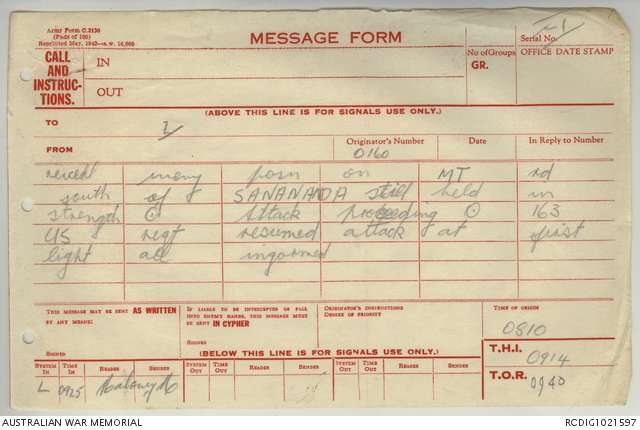 Army Form C.2136
(Pads of 100)
MESSAGE FORM
Serial No.
CALL AND INSTRUC-TIONS.
IN
OUT
No of Groups
GR.
OFFICE DATE STAMP
(ABOVE THIS LINE IS FOR SIGNALS USE ONLY.)
TO
FROM
Originator's Number
0160
Date
In Reply to Number
enemy posn on MT rd
south of SANANANDA still held in
strength ⊙ Attack proceeding ⊙ 163
US regt resumed attack at first
light all informed
THIS MESSAGE MAY BE SENT AS WRITTEN
BY ANY MEANS:
SIGNED
IF LIABLE TO BE INTERCEPTED OR FALL
INTO ENEMY HANDS, THIS MESSAGE MUST
BE SENT IN CYPHER
SIGNED
ORIGINATOR'S INSTRUCTIONS
DEGREE OF PRIORITY
TIME OF ORIGIN
0810
T.H.I.
0914
T.O.R.
0940
(BELOW THIS LINE IS FOR SIGNALS USE ONLY.)
SYSTEM IN TIME IN READER SENDER SYSTEM OUT TIME OUT READER SENDER SYSTEM OUT TIME OUT READER SENDER
L 0925
AUSTRALIAN WAR MEMORIAL
RCDIG1021597